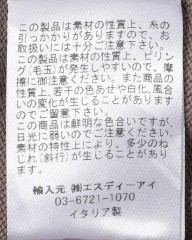 この製品は素材の性質上、糸の
引っかかりがありますので、お
取扱いには十分ご注意下さい。
この製品は素材の性質上、ピリン
グ(毛玉)が発生しますので、摩
擦に御注意ください。また商品の
性質上、若干の色あせや白化、風合
いの変化が生じることがあります
のでご留意下さい。
この商品は鮮明な色合いですが、
日光に弱いのでご注意ください。
素材の特性上により、多少のね
じれ(斜行)が生じることがあり
ます。
輸入元 ㈱エスディーアイ
03-6721-1070
イタリア製